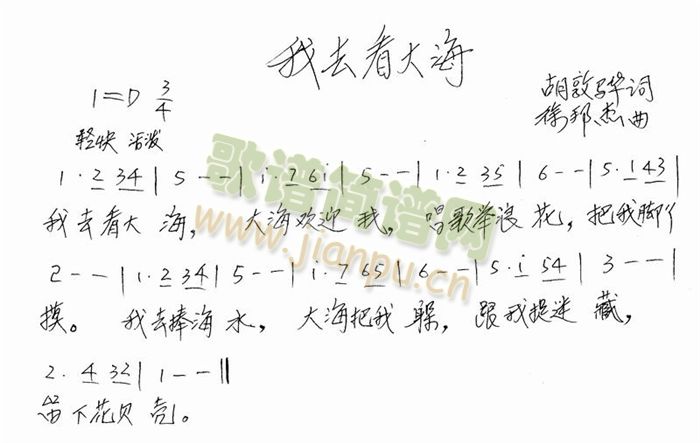 我去看大海
1=D 3/4
胡敦骅词
徐邦杰曲
轻快 活泼
1·2 34 | 5 - - | i·7 6i | 5 - - | 1·2 35 | 6 - - | 5·1 43 |
我去看大 海, 大海欢迎 我, 唱歌举浪 花, 把我脚丫
2 - - | 1·2 34 | 5 - - | i·7 65 | 6 - - | 5·i 54 | 3 - - |
摸。 我去捧海 水, 大海把我 躲, 跟我捉迷 藏,
2·4 32 | 1 - - ||
留下花贝 壳。
歌谱简谱网
www.jianpu.cn